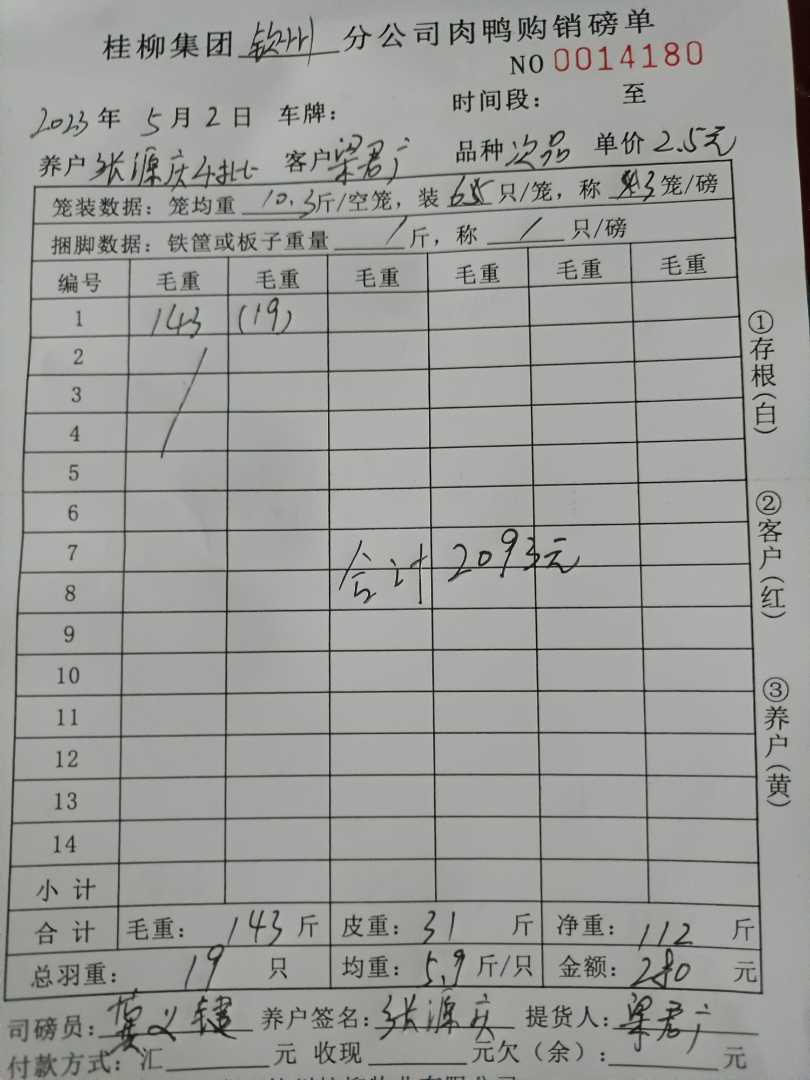 桂柳集团 钦州 分公司肉鸭购销磅单
NO 0014180
2023年 5月2日 车牌： 时间段： 至
养户 张源庆 4批 客户 梁君广 品种 次品 单价 2.5元
笼装数据：笼均重 10.3斤/空笼，装 6.5只/笼，称 3笼/磅
捆脚数据：铁筐或板子重量 / 斤，称 / 只/磅
编号 毛重 毛重 毛重 毛重 毛重 毛重
1 143 (19)
2
3
4
5
6
7
合计 2093元
8
9
10
11
12
13
14
小计
合计 毛重：143斤 皮重：31 斤 净重：112 斤
总羽重：19 只 均重：5.9斤/只 金额：280 元
司磅员： 养户签名：张源庆 提货人：梁君广
付款方式：汇 元 收现 元欠（余）： 元
①存根（白）
②客户（红）
③养户（黄）